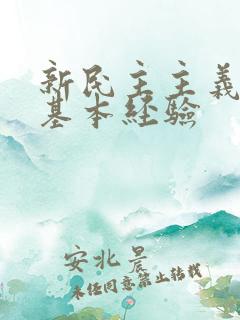 新民主主義
基本経驗
安北晨
未经同意禁止转载